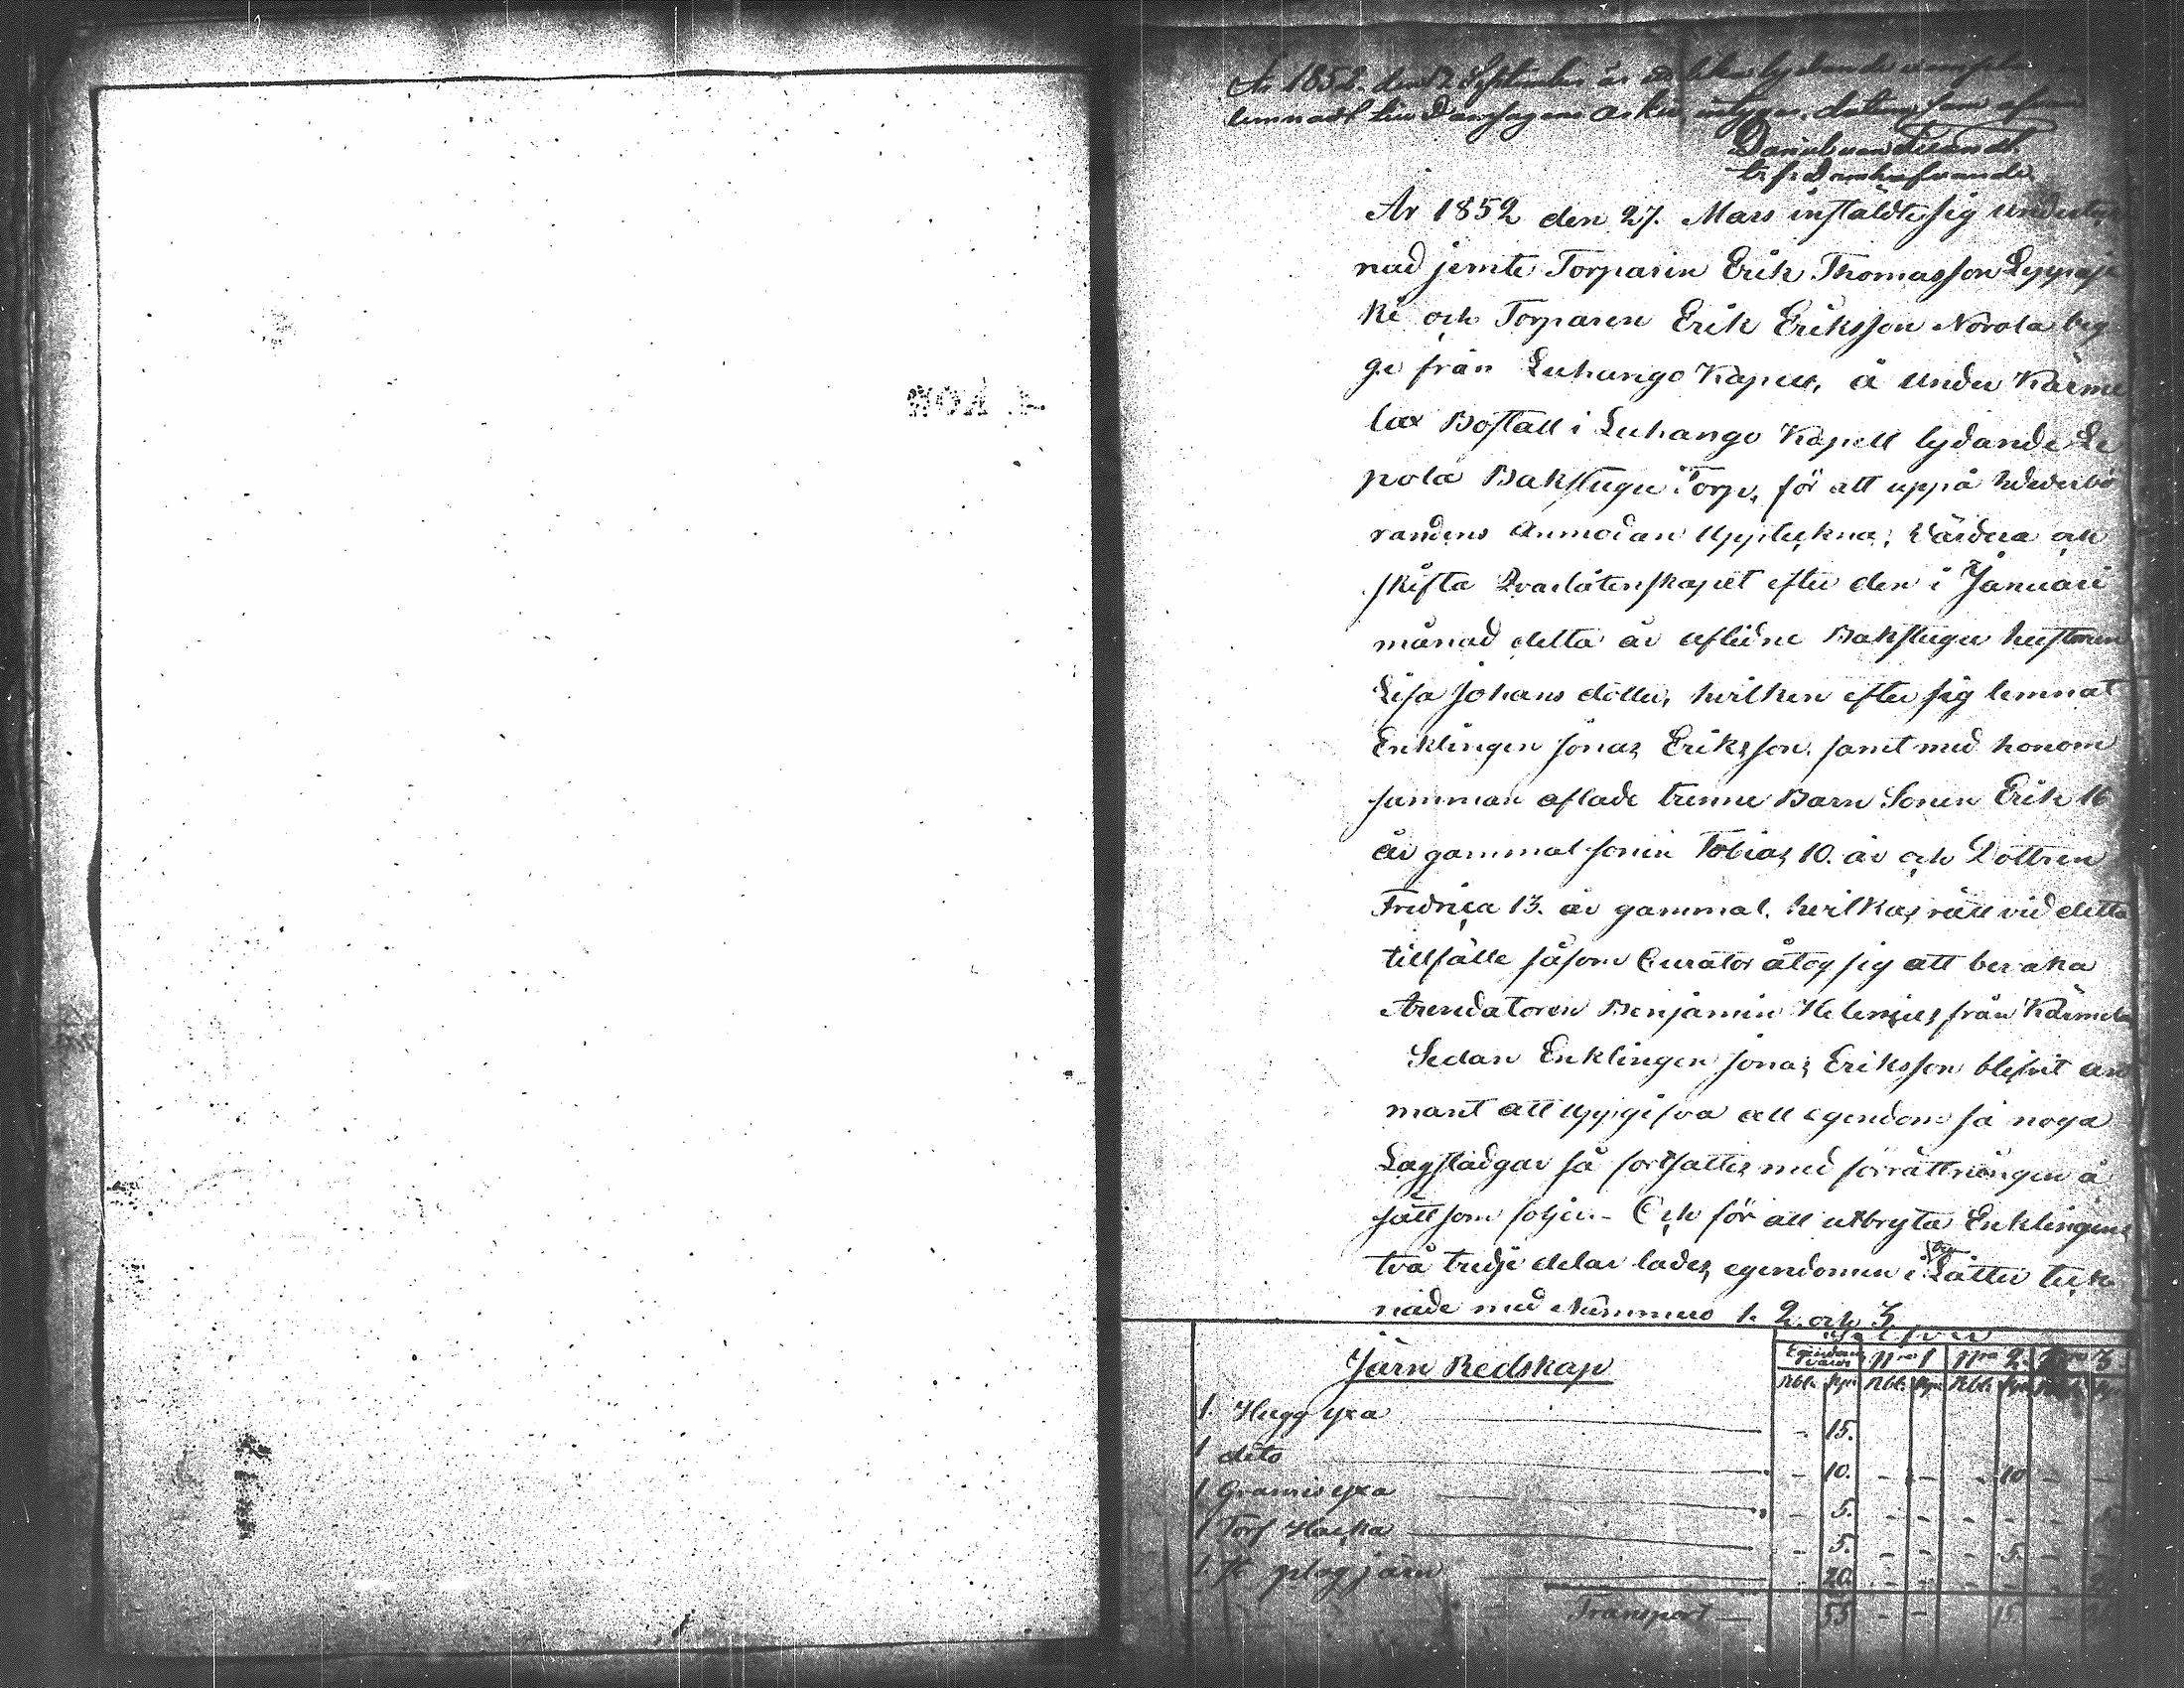 År 1852. den 2 September är ett lika lydande exemplar
lemnadt till Domsagans Arkiv, intygar, datum som ofvan
Daniel von
År 1852 den 27. Mars instäldte sig underteck
nad jemte Torparen Erik Thomasson Leppajä
ki och Torparen Erik Eriksson Norola beg
ge från Luhango Kapell, å under Kärme
lax Boställ i Luhango Kapell lydande Le
pola Bakstugu Torp, för att uppå Wederbö
randens Anmodan Upptekna, Värdera och
skifta Qvarlåtenskapet efter den i Januari
månad detta år aflidne Bakstugu hustrun
Lisa Johans dotter, hvilken efter sig lemnat
Enklingen Jonas Eriksson, samt med honom
samman aflade trenne Barn Sonen Erik 16
år gammal sonen Tobias 10. år och Dottren
Fredrica 13. år gammal. hvilkas rätt vid detta
tillfälle såsom Curator åtog sig att bevaka
Arendatoren Benjamin Helenius från Kärmela
Sedan Enklingen Jonas Eriksson blifvit an
mant att Uppgifva all egendom så noga
Lag stadgar så fortsattes med förrättningen å
sätt som följer. - Och för att utbryta Enklingens
två tredje delar lades egendomen i Låtter teck
nade med Nummero 1. 2. och 3.
Järn Redskap
Egendoms värde Nro 1 Nro 2. Nro 3
Rbl. Kpk Rbl. Kpk Rbl. Kpk
1. Hugg yxa - 15.
1 dito - 10. - - - 10 - -
1 Gramsyxa - 5. - - - - -
1 Torf Hacka - 5. - - - 5. - -
1. plog järn 20. - - - - -
Transport - 55 - - 15 -